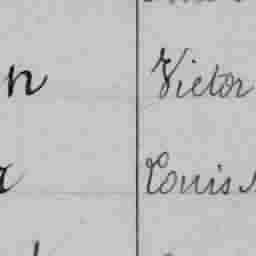 n Victor
a Louis